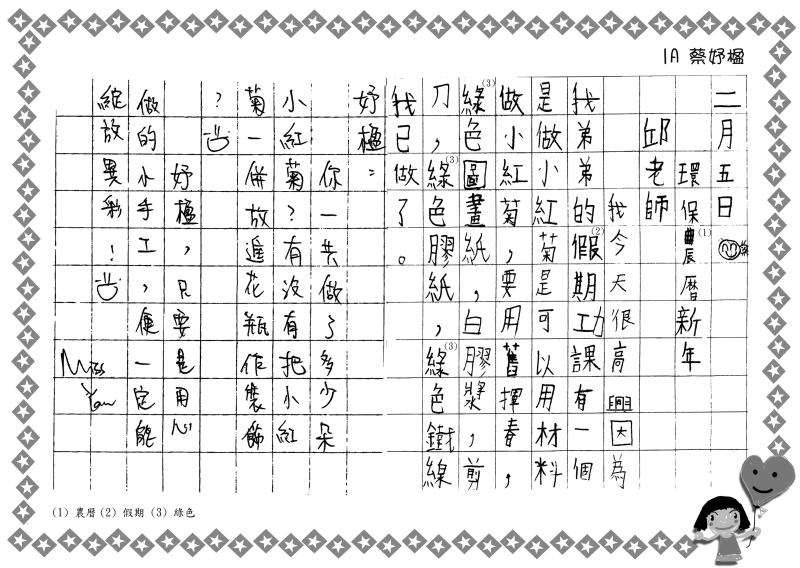 1A 蔡妤楹
二月五日
環保農(1)曆新年
邱老師
我今天很高興因為
我弟弟的假(2)期功課有一個
是做小紅菊是可以用材料
做小紅菊，要用舊揮春，
綠(3)色圖畫紙，白膠漿，剪
刀，綠(3)色膠紙，綠(3)色鐵線
我已做了。
妤楹：
你一共做了多少朵
小紅菊？有沒有把小紅
菊一併放進花瓶作裝飾
？
妤楹，只要是用心
做的小手工，便一定能
綻放異彩！
Miss
Yau
(1) 農曆 (2) 假期 (3) 綠色